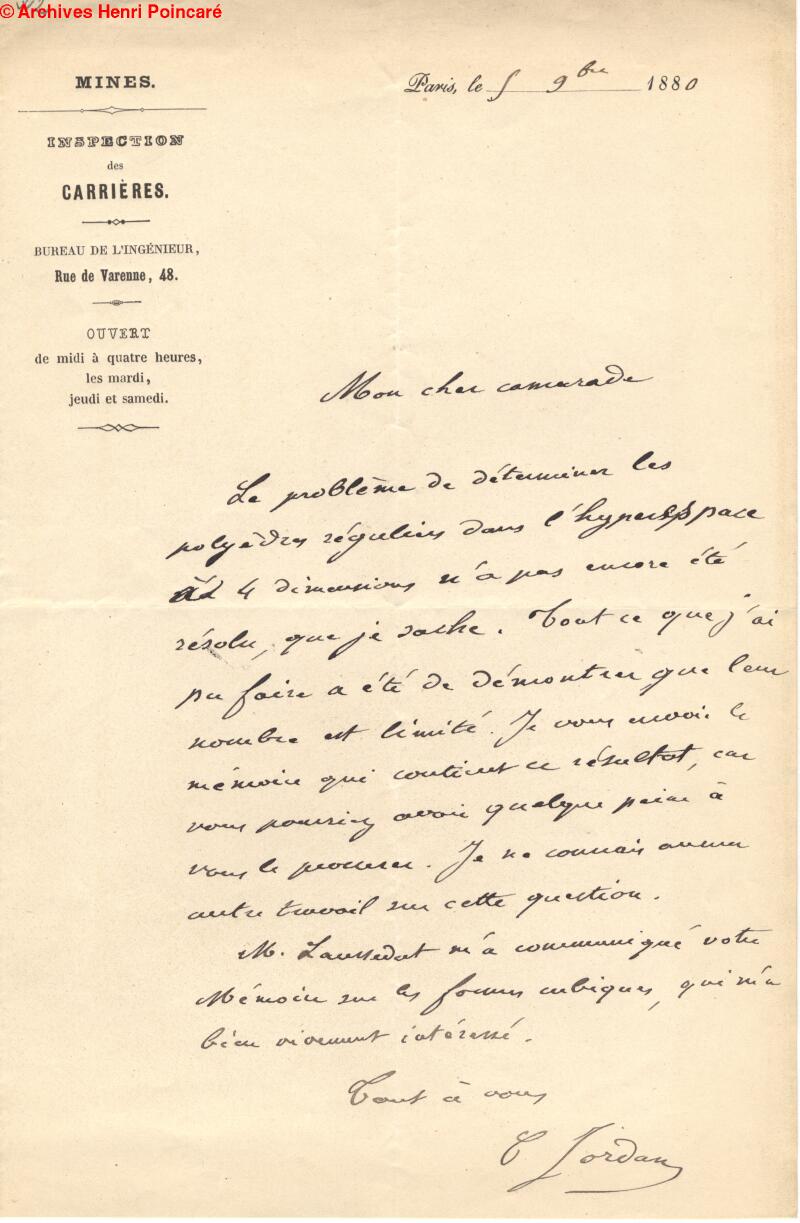 © Archives Henri Poincaré
MINES.
INSPECTION
des
CARRIÈRES.
BUREAU DE L'INGÉNIEUR,
Rue de Varenne, 48.
OUVERT
de midi à quatre heures,
les mardi,
jeudi et samedi.
Paris, le 5 9bre 1880
Mon cher camarade
Le problème de déterminer les
polyèdres réguliers dans l'hyperespace
à 4 dimensions n'a pas encore été
résolu, que je sache. Tout ce que j'ai
pu faire a été de démontrer que leur
nombre est limité. Je vous envoie le
mémoire qui contient ce résultat, car
vous pourriez avoir quelque peine à
vous le procurer. Je ne connais aucun
autre travail sur cette question.
M. Laussedat m'a communiqué votre
Mémoire sur les formes cubiques, qui m'a
bien vivement intéressé.
Tout à vous
C Jordan